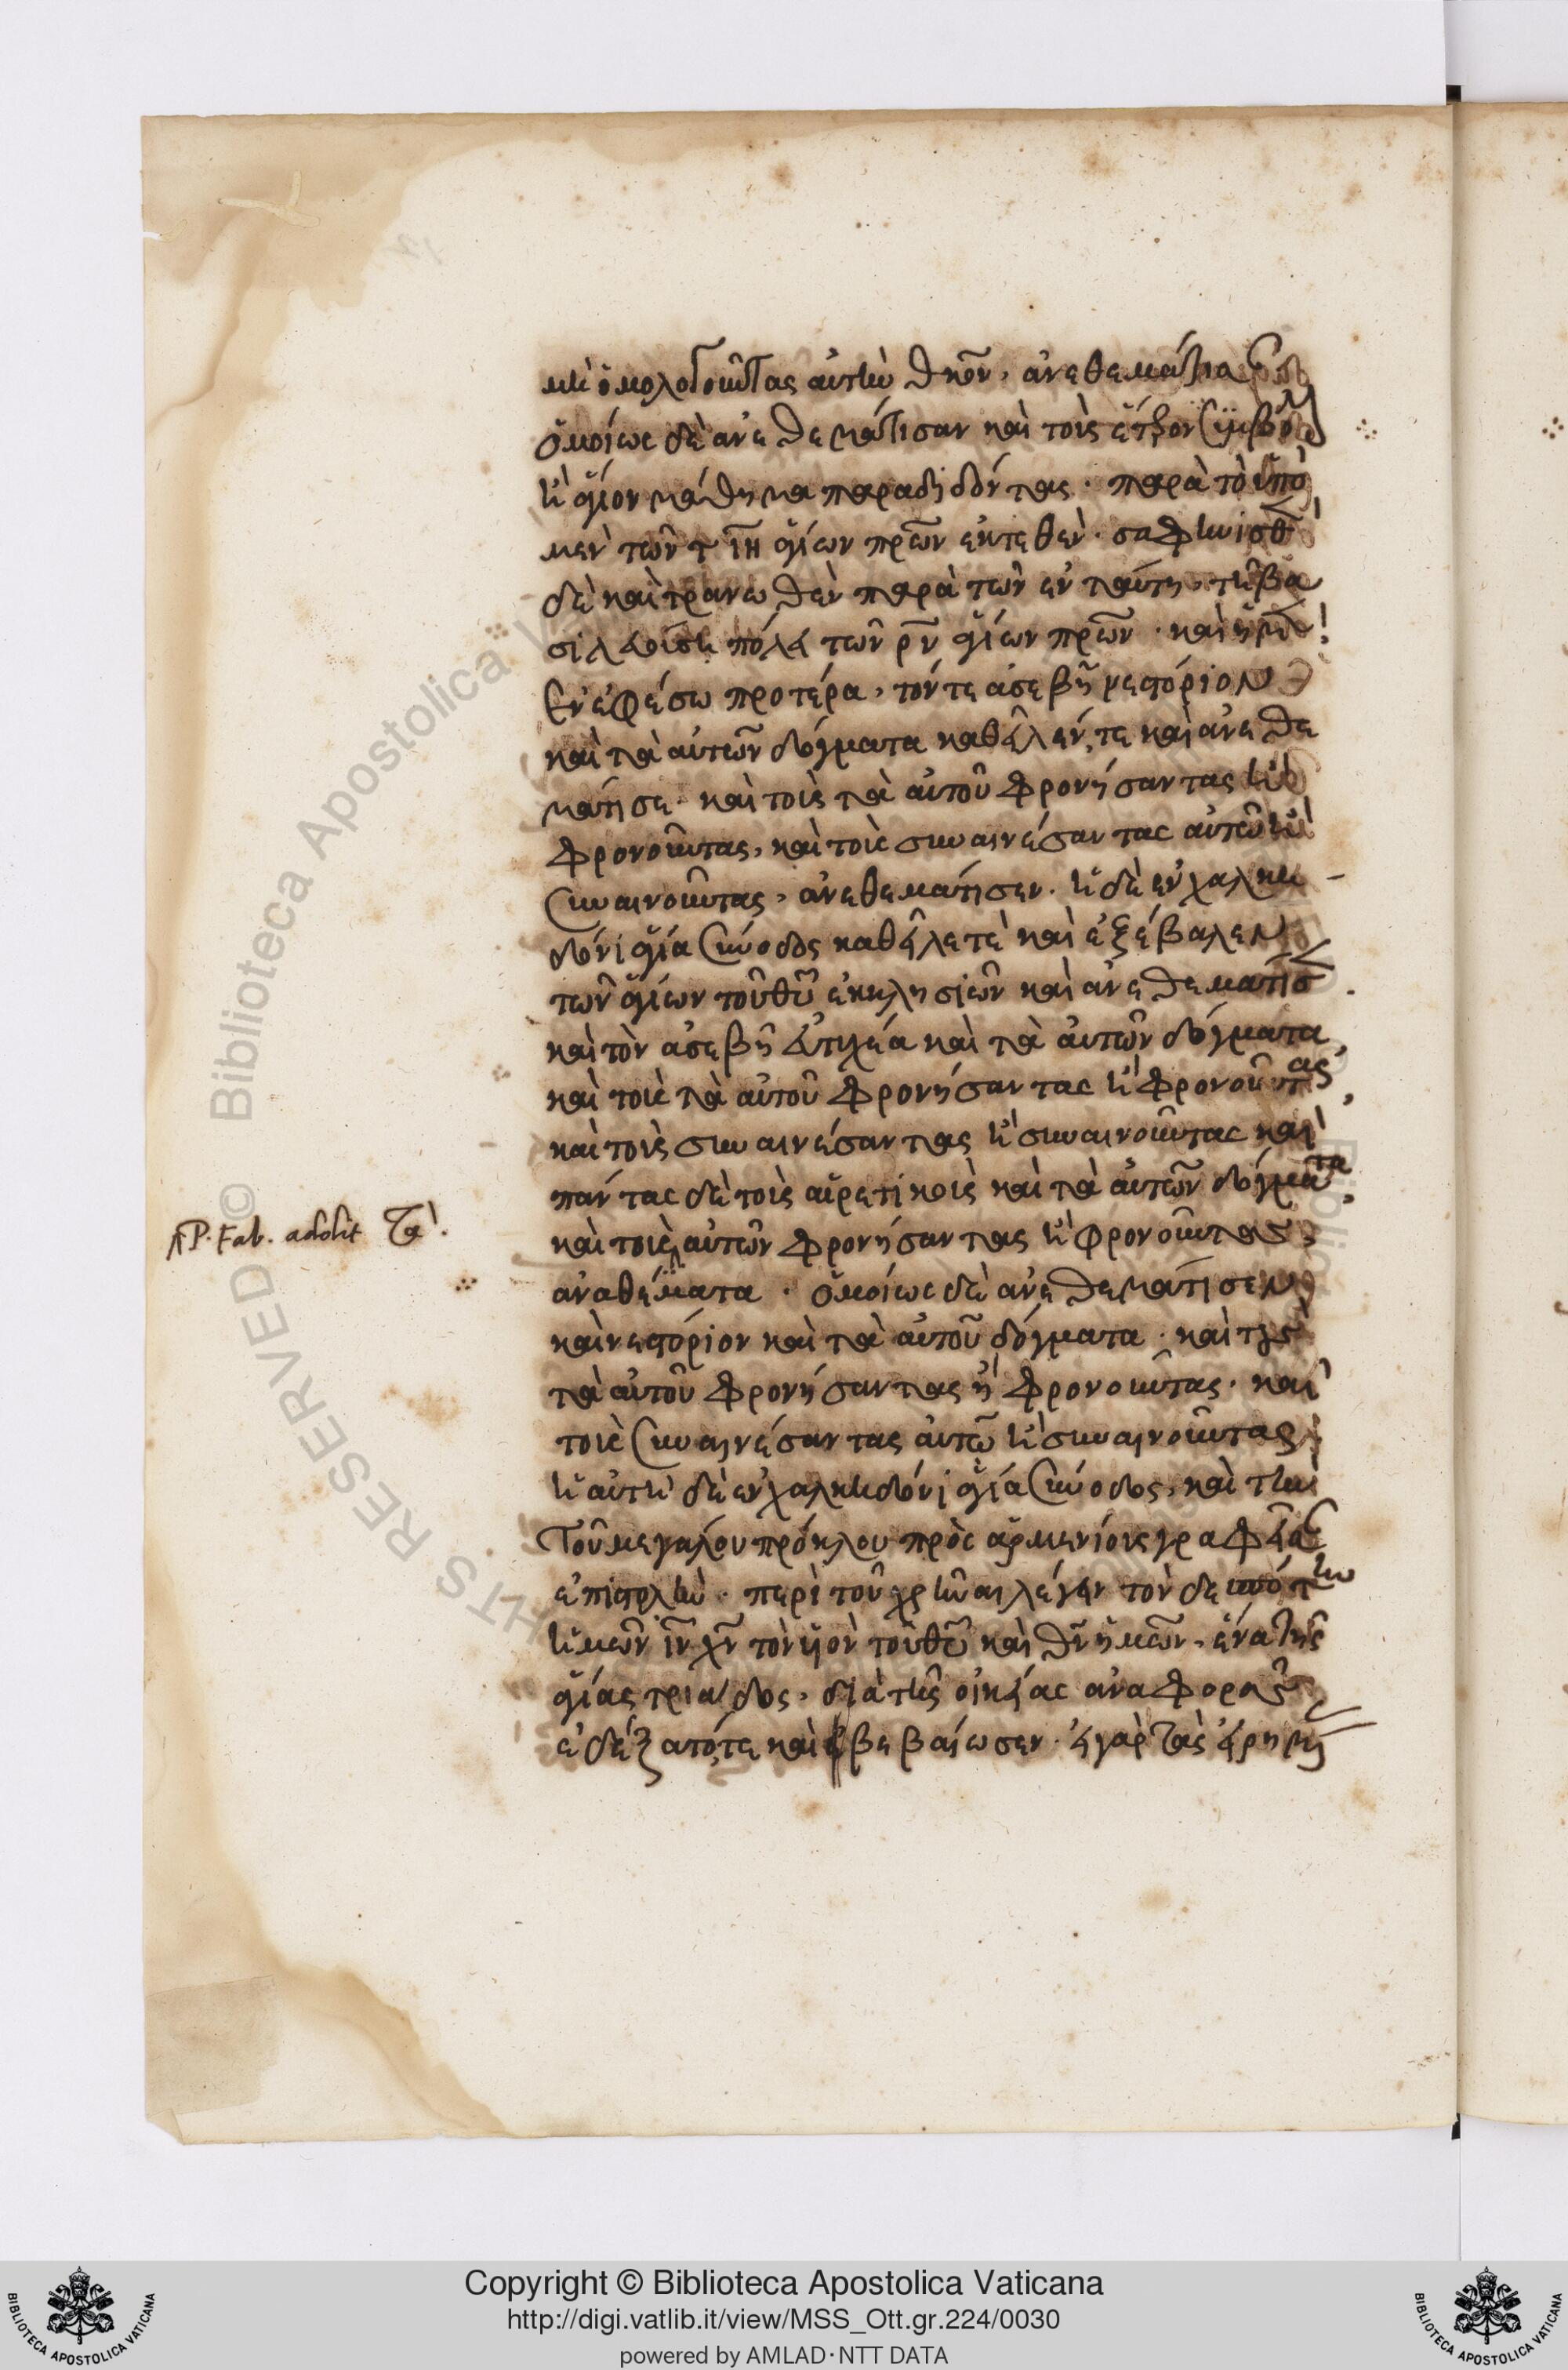 μὴ ὁμολογοῦντας αὐτὴν θκον, ἀνεθεμάτισαν
ὁμοίως δὲ ἀνεθεμάτισαν καὶ τοὺς ἕτερον σύμβολ
ἢ ἅγιον μάθημα παραδιδόντας · παρὰ τὸ ὑπὸ
μὲν τῶν τ ιη ἁγίων πρων ἐκτεθὲν · σαφηνισθ
δὲ καὶ τρανωθὲν παρὰ τῶν ἐν ταύτη τῆ βα
σιλευούση πόλει τῶν ρν ἁγίων πρων · καὶ ἡ μὲ
ἐν ἐφέσω προτέρα, τόν τε ἀσεβῆ νεστόριον
καὶ τὰ αὐτῶν δόγματα καθεῖλέν τε καὶ ἀνεθε
μάτισε · καὶ τοὺς τὰ αὐτοῦ φρονήσαντας ἢ
φρονοῦντας, καὶ τοὺς συναινέσαντας αὐτῶ ἢ
συναινοῦντας, ἀνεθεμάτισεν · ἡ δὲ ἐν χαλκη
δόνι ἁγία σύνοδος καθεῖλε τὲ καὶ ἐξέβαλεν
τῶν ἁγίων τοῦ θυ ἐκκλησιῶν καὶ ἀνεθεμάτισ
καὶ τὸν ἀσεβῆ εὐτυχέα καὶ τὰ αὐτῶν δόγματα,
καὶ τοὺς τὰ αὐτοῦ φρονήσαντας ἢ φρονοῦντας,
καὶ τοὺς συναινέσαντας ἢ συναινοῦντας καὶ
πάντας δὲ τοὺς αἱρετικοὺς καὶ τὰ αὐτῶν δόγματα,
καὶ τοὺς αὐτῶν φρονήσαντας ἢ φρονοῦντας,
P. Fab. addit τὰ.
ἀναθέματα · ὁμοίως δὲ ἀνεθεμάτισεν
καὶ νεστόριον καὶ τὰ αὐτοῦ δόγματα · καὶ τοὺς
τὰ αὐτοῦ φρονήσαντας ἢ φρονοῦντας · καὶ
τοὺς συναινέσαντας αὐτῶ ἢ συναινοῦντας
ἡ αὐτὴ δὲ ἐν χαλκηδόνι ἁγία σύνοδος, καὶ τὴν
τοῦ μεγάλου πρόκλου πρὸς ἀρμενίους γραφεῖσ
ἐπιστολὴν · περὶ τοῦ χρῆναι λέγειν τὸν δεσπότην
ἡμῶν ιν χν τὸν υἱὸν τοῦ θυ καὶ θν ἡμῶν, ἕνα τῆς
ἁγίας τριάδος, διὰ τῆς οἰκείας ἀναφορᾶς
ἐδέξατό τε καὶ ἐβεβαίωσεν · εἰ γὰρ τὰς εἰρημ
Copyright © Biblioteca Apostolica Vaticana
http://digi.vatlib.it/view/MSS_Ott.gr.224/0030
powered by AMLAD·NTT DATA